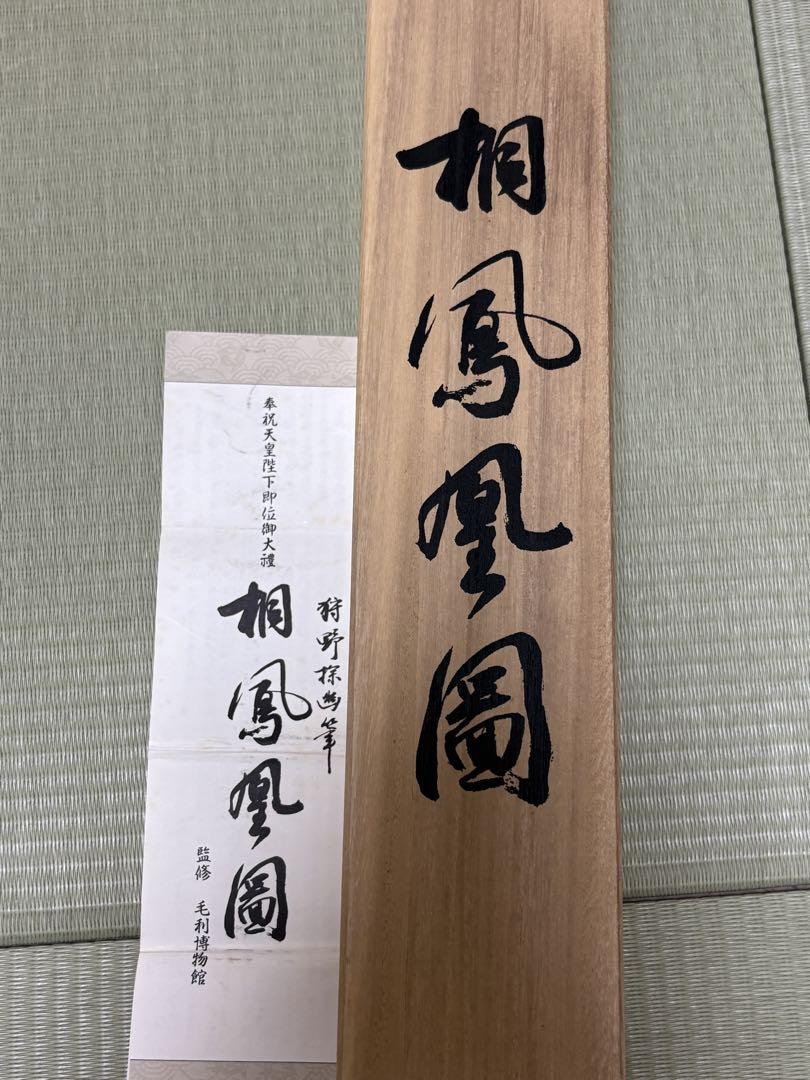 桐鳳凰圖
奉祝天皇陛下即位御大禮
狩野探幽筆
桐鳳凰圖
監修 毛利博物館